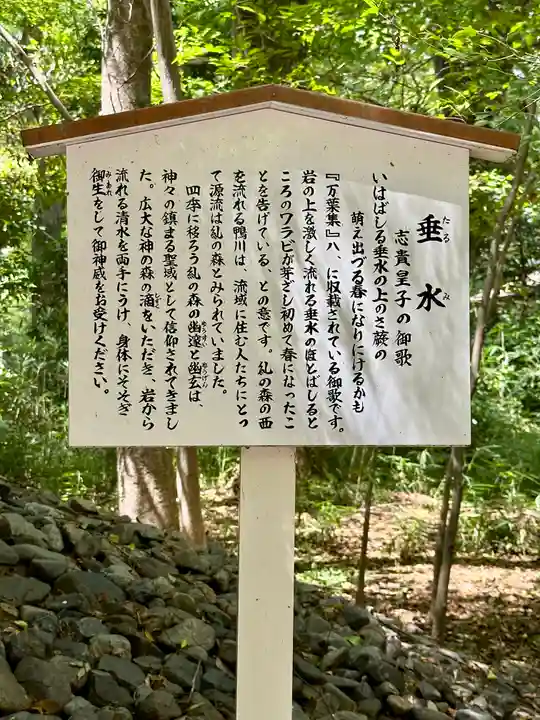 垂水
たる
み
志貴皇子の御歌
いはばしる垂水の上のさ蕨の
萌え出づる春になりにけるかも
『万葉集』八、に収載されている御歌です。
岩の上を激しく流れる垂水のほとばしると
ころのワラビが芽ざし初めて春になったこ
とを告げている、との意です。糺の森の西
を流れる鴨川は、流域に住む人たちにとっ
て源流は糺の森とみられていました。
四季に移ろう糺の森の幽邃と幽玄は、
神々の鎮まる聖域として信仰されてきまし
た。広大な神の森の滴をいただき、岩から
しずく
流れる清水を両手にうけ、身体にそそぎ
御生をして御神威をお受けください。
みあれ